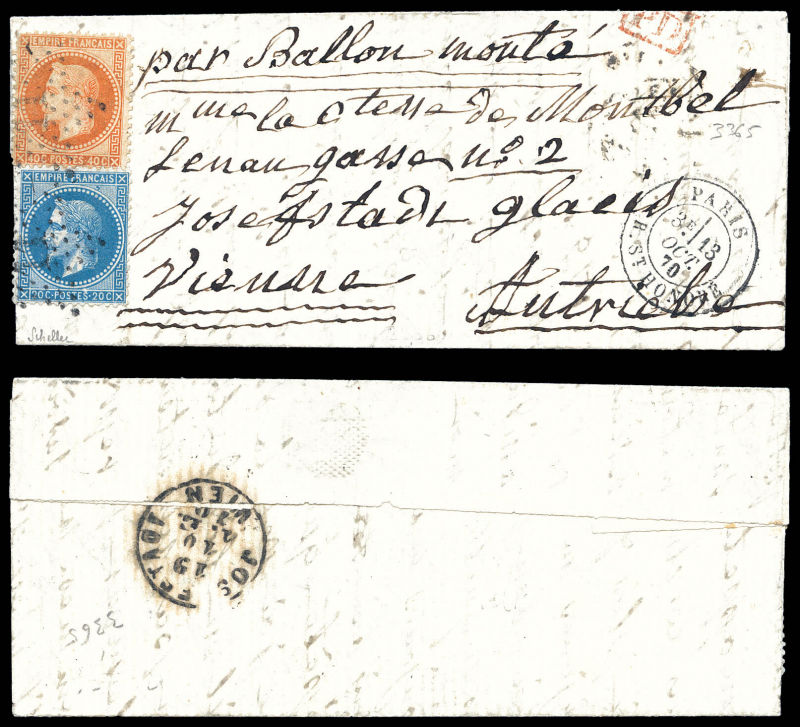 EMPIRE FRANÇAIS
40C·POSTES·40C
EMPIRE FRANÇAIS
20C·POSTES·20C
PD
par Ballon monté
mme la ctesse de Montbel
3365
Lenau gasse no 2
Josefstadt glacis
Vienne
Autriche
PARIS
3E 13
OCT.
70
R. ST HONORÉ
Scheller
WIEN
JOSEFSTADT
19
10
3365